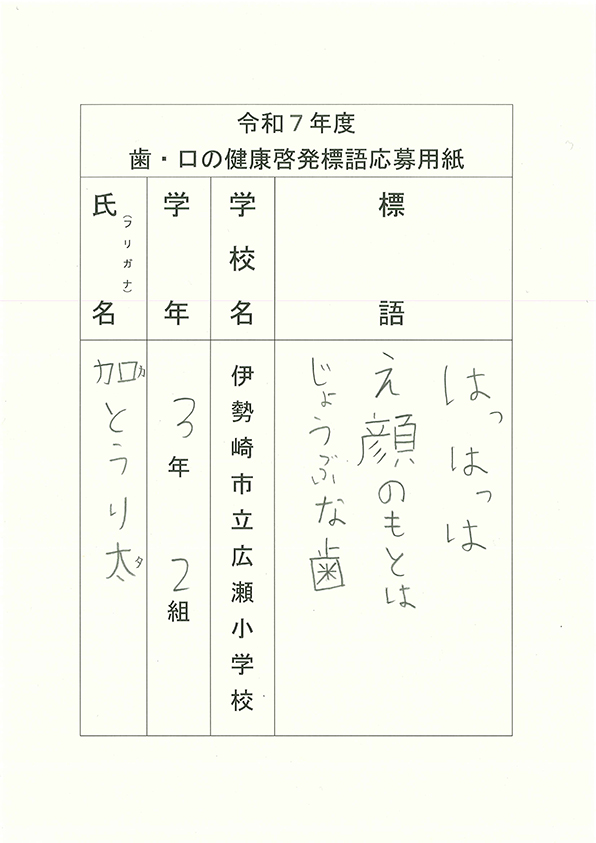 令和７年度
歯・口の健康啓発標語応募用紙
標語
はっはっは
え顔のもとは
じょうぶな歯
学校名
伊勢崎市立広瀬小学校
学年
3年 2組
氏名
(フリガナ)
加とうり太
カ タ